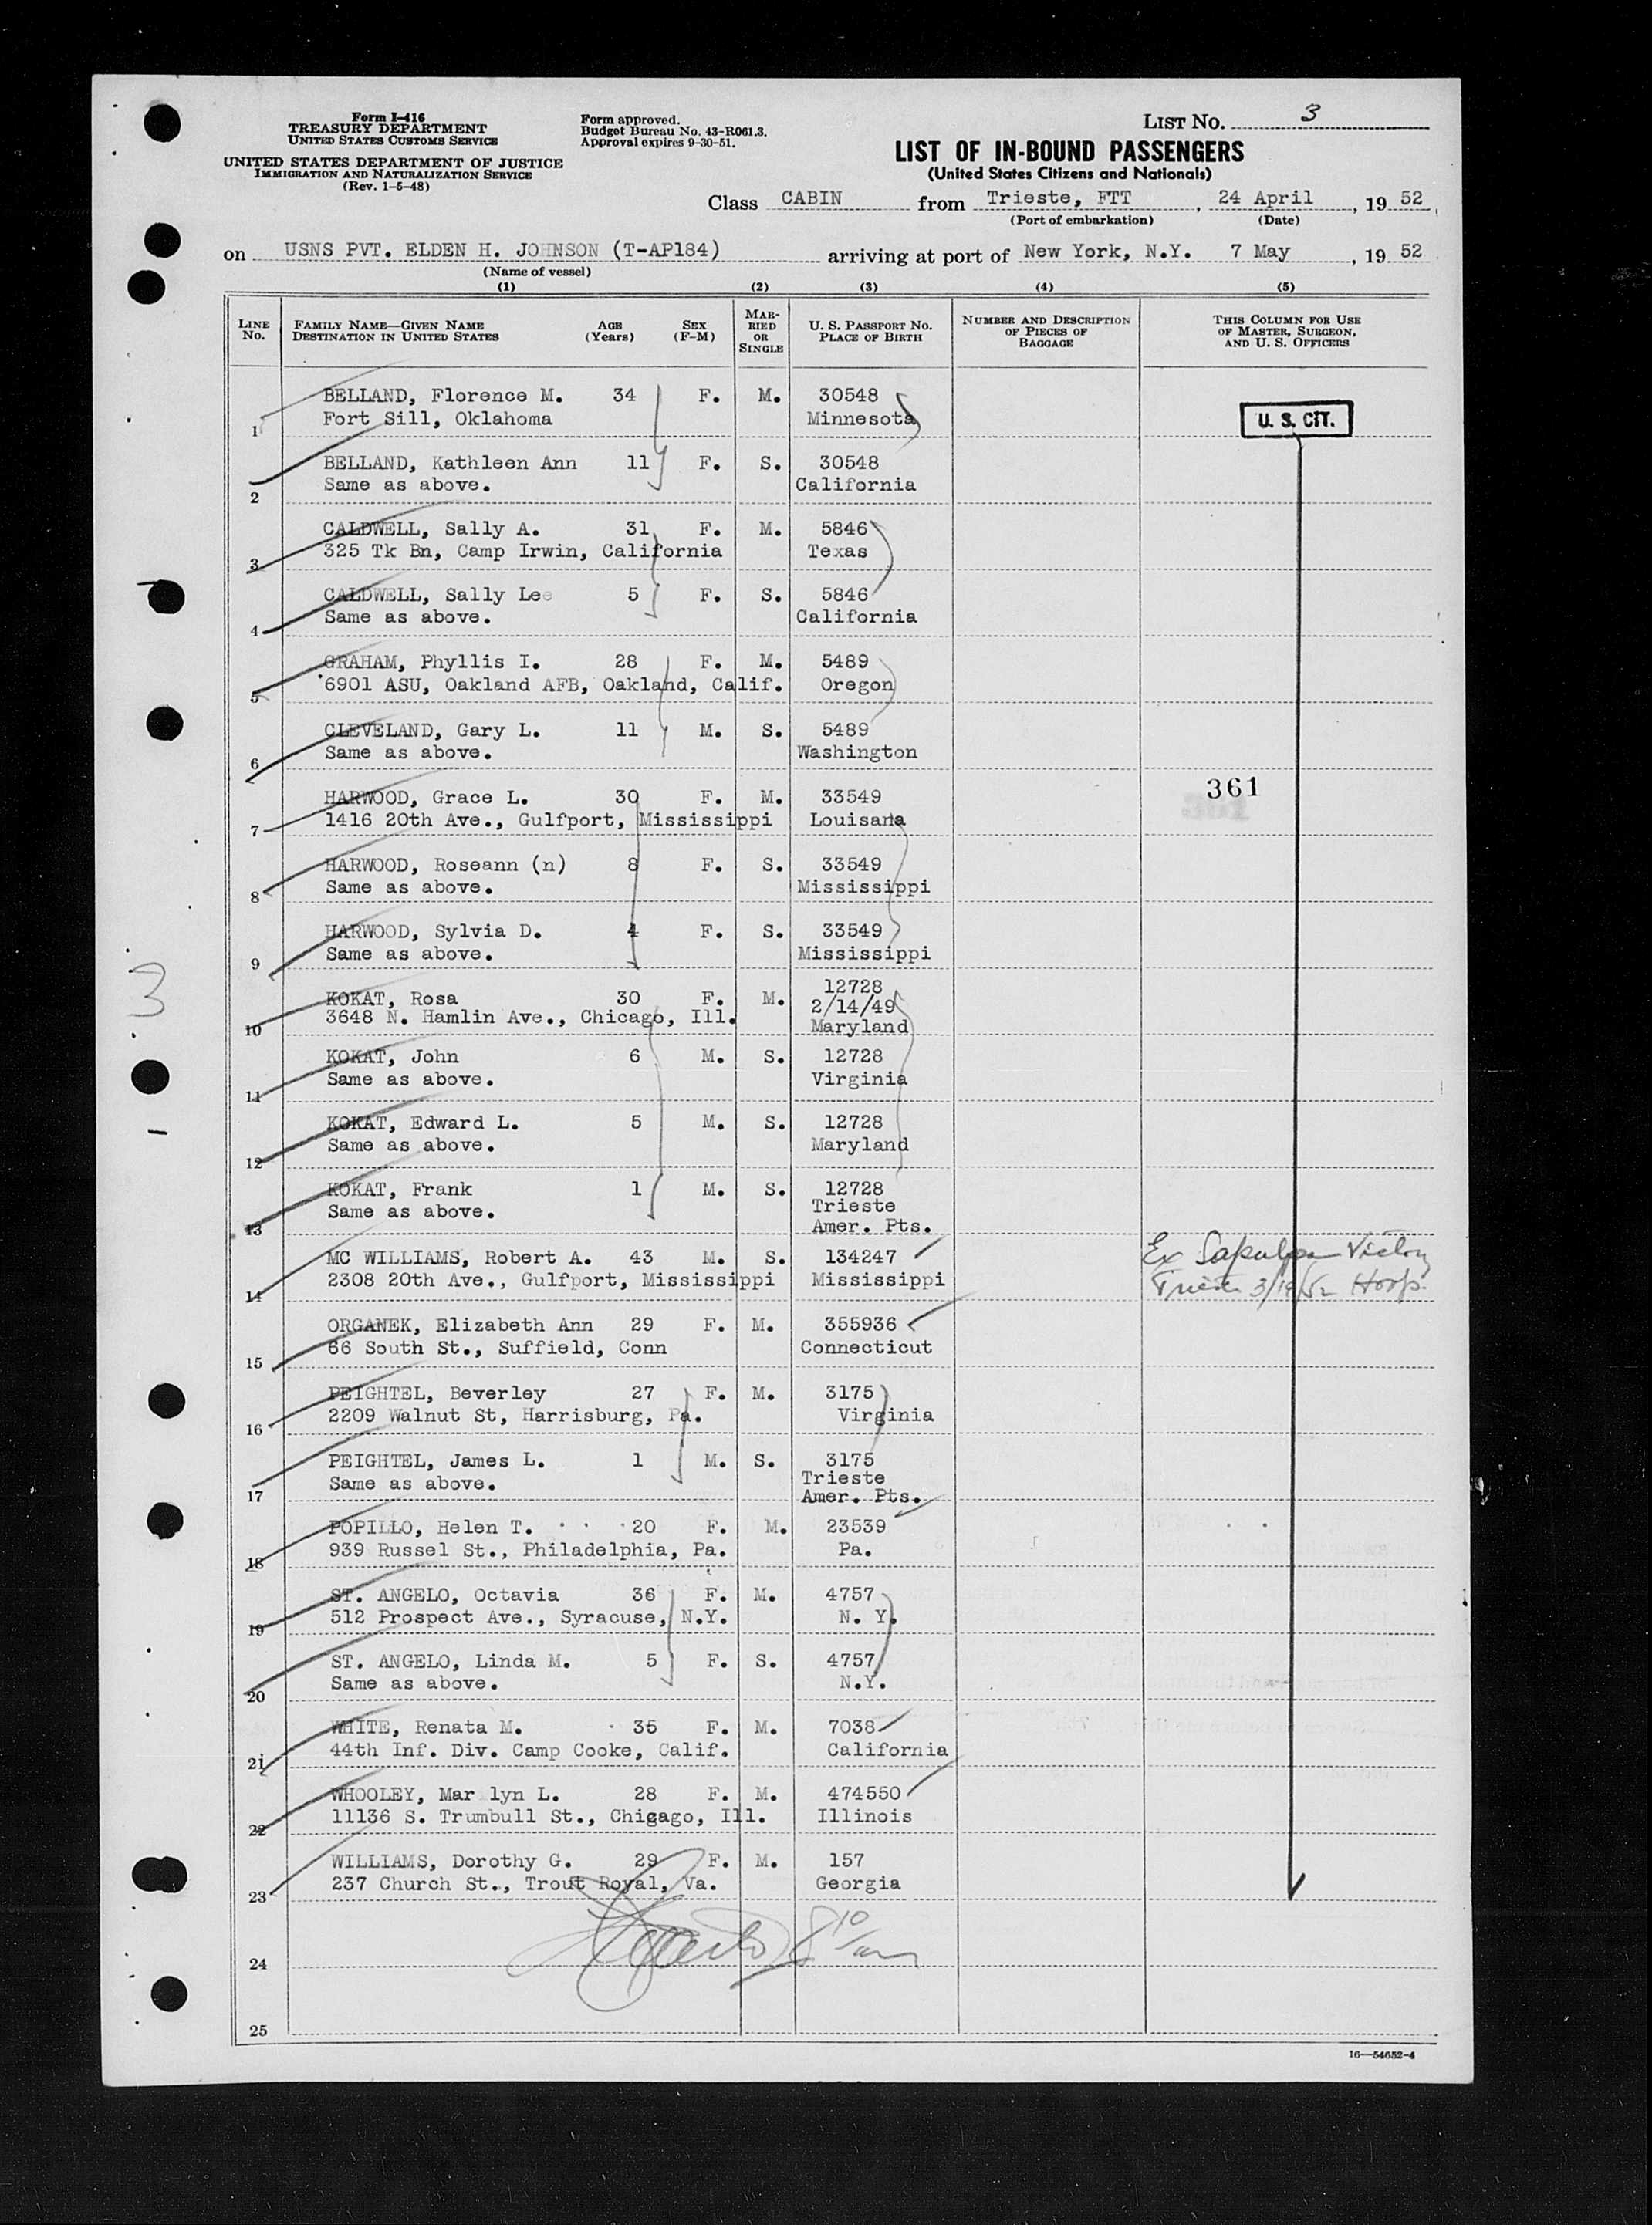 Form I-416
TREASURY DEPARTMENT
UNITED STATES CUSTOMS SERVICE
UNITED STATES DEPARTMENT OF JUSTICE
IMMIGRATION AND NATURALIZATION SERVICE
(Rev. 1-5-48)
Form approved.
Budget Bureau No. 43-R061.3.
Approval expires 9-30-51.
LIST NO. 3
LIST OF IN-BOUND PASSENGERS
(United States Citizens and Nationals)
Class CABIN from Trieste, FTT, 24 April, 19 52,
(Port of embarkation) (Date)
on USNS PVT. ELDEN H. JOHNSON (T-AP184) arriving at port of New York, N.Y. 7 May, 19 52
(Name of vessel)
(1) (2) (3) (4) (5)
LINE NO. FAMILY NAME—GIVEN NAME DESTINATION IN UNITED STATES AGE (Years) SEX (F-M) MARRIED OR SINGLE U. S. PASSPORT NO. PLACE OF BIRTH NUMBER AND DESCRIPTION OF PIECES OF BAGGAGE THIS COLUMN FOR USE OF MASTER, SURGEON, AND U. S. OFFICERS
BELLAND, Florence M. 34 F. M. 30548
1 Fort Sill, Oklahoma Minnesota U. S. CIT.
BELLAND, Kathleen Ann 11 F. S. 30548
2 Same as above. California
CALDWELL, Sally A. 31 F. M. 5846
3 325 Tk Bn, Camp Irwin, California Texas
CALDWELL, Sally Lee 5 F. S. 5846
4 Same as above. California
GRAHAM, Phyllis I. 28 F. M. 5489
5 6901 ASU, Oakland AFB, Oakland, Calif. Oregon
CLEVELAND, Gary L. 11 M. S. 5489
6 Same as above. Washington
HARWOOD, Grace L. 30 F. M. 33549 361
7 1416 20th Ave., Gulfport, Mississippi Louisana
HARWOOD, Roseann (n) 8 F. S. 33549
8 Same as above. Mississippi
HARWOOD, Sylvia D. 4 F. S. 33549
9 Same as above. Mississippi
3
KOKAT, Rosa 30 F. M. 12728
2/14/49
10 3648 N. Hamlin Ave., Chicago, Ill. Maryland
KOKAT, John 6 M. S. 12728
11 Same as above. Virginia
KOKAT, Edward L. 5 M. S. 12728
12 Same as above. Maryland
KOKAT, Frank 1 M. S. 12728
13 Same as above. Trieste
Amer. Pts.
MC WILLIAMS, Robert A. 43 M. S. 134247 Ex Sapulpa Victory
14 2308 20th Ave., Gulfport, Mississippi Mississippi Trieste
ORGANEK, Elizabeth Ann 29 F. M. 355936
15 66 South St., Suffield, Conn Connecticut
PEIGHTEL, Beverley 27 F. M. 3175
16 2209 Walnut St, Harrisburg, Pa. Virginia
PEIGHTEL, James L. 1 M. S. 3175
17 Same as above. Trieste
Amer. Pts.
POPILLO, Helen T. 20 F. M. 23539
18 939 Russel St., Philadelphia, Pa. Pa.
ST. ANGELO, Octavia 36 F. M. 4757
19 512 Prospect Ave., Syracuse, N.Y. N. Y.
ST. ANGELO, Linda M. 5 F. S. 4757
20 Same as above. N.Y.
WHITE, Renata M. 35 F. M. 7038
21 44th Inf. Div. Camp Cooke, Calif. California
WHOOLEY, Mar lyn L. 28 F. M. 474550
22 11136 S. Trumbull St., Chicago, Ill. Illinois
WILLIAMS, Dorothy G. 29 F. M. 157
23 237 Church St., Trout Royal, Va. Georgia
24
25
16—54652-4